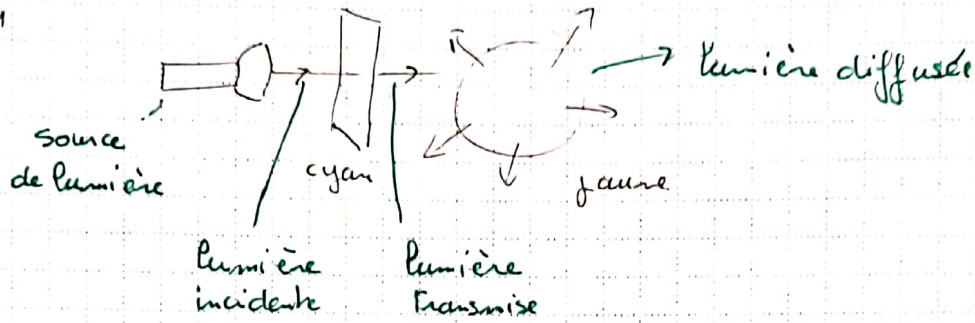 lumière diffusée
source
de lumière
cyan
jaune
lumière
incidente
lumière
transmise